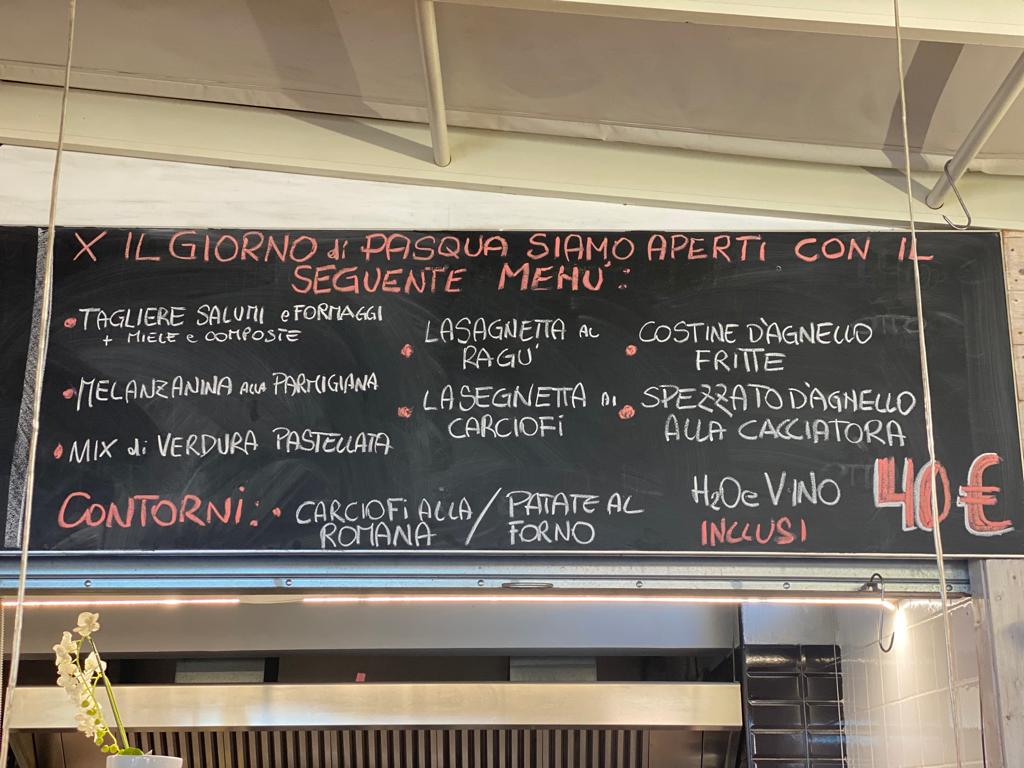 X IL GIORNO di PASQUA SIAMO APERTI CON IL
SEGUENTE MENU':
• TAGLIERE SALUMI e FORMAGGI
+ MIELE e COMPOSTE
• MELANZANINA alla PARMIGIANA
• MIX di VERDURA PASTELLATA
• LASAGNETTA AL
RAGU'
• LASEGNETTA AI
CARCIOFI
• COSTINE D'AGNELLO
FRITTE
• SPEZZATO D'AGNELLO
ALLA CACCIATORA
CONTORNI: • CARCIOFI ALLA
ROMANA /
PATATE AL
FORNO
H2O e VINO
INCLUSI
40€